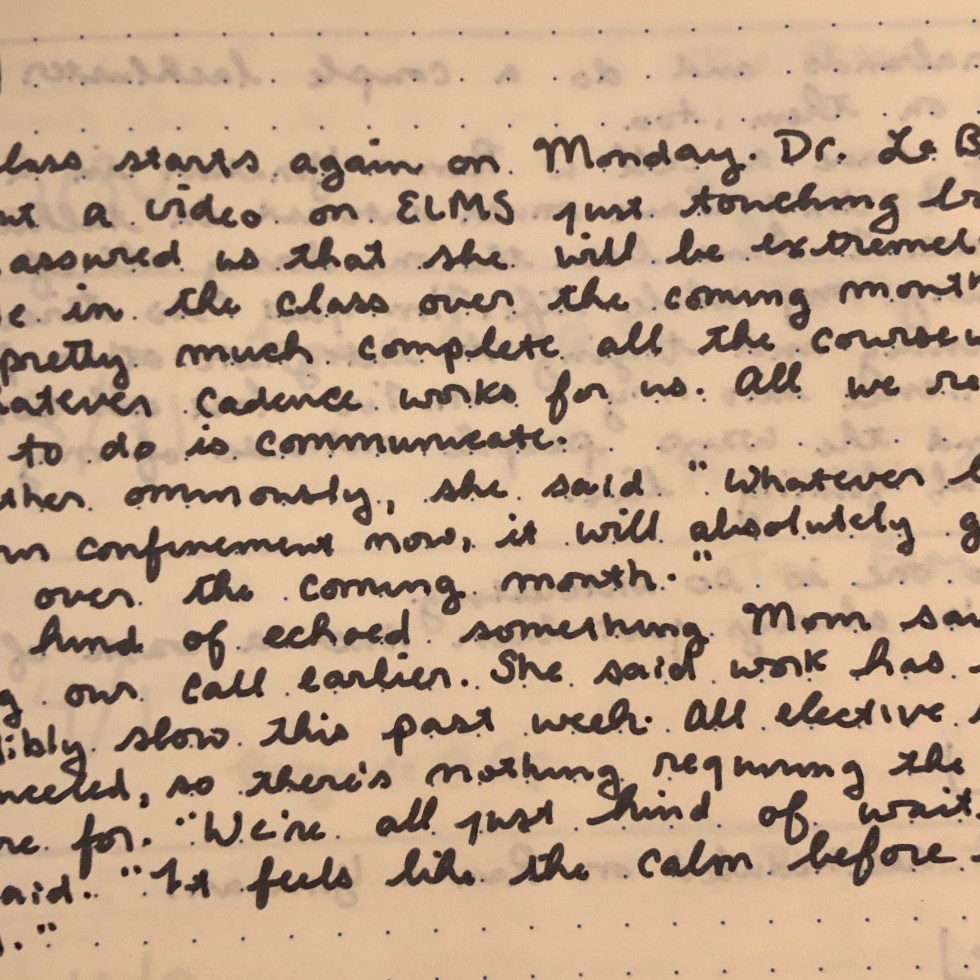 class starts again on Monday. Dr. La B
a video on ELMS just touching
assured us that she will be extremel
in the class over the coming month
pretty much complete all the coursew
hatever cadence works for us. All we
to do is communicate.
ominously, she said "Whatever
confinement now, it will absolutely g
over the coming month."
kind of echoed something Mom sa
our call earlier. She said work has
dibly slow this past week. All elective
nceled, so there's nothing requiring the
re for. "We're all just kind of wait
aid. "It feels like the calm before
."